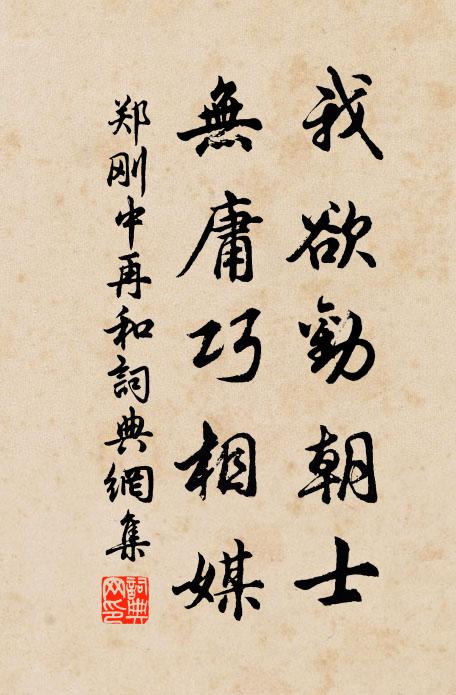 我欲勸朝士
無庸巧相媒
郑刚中再和詞典網集
詞典
网印